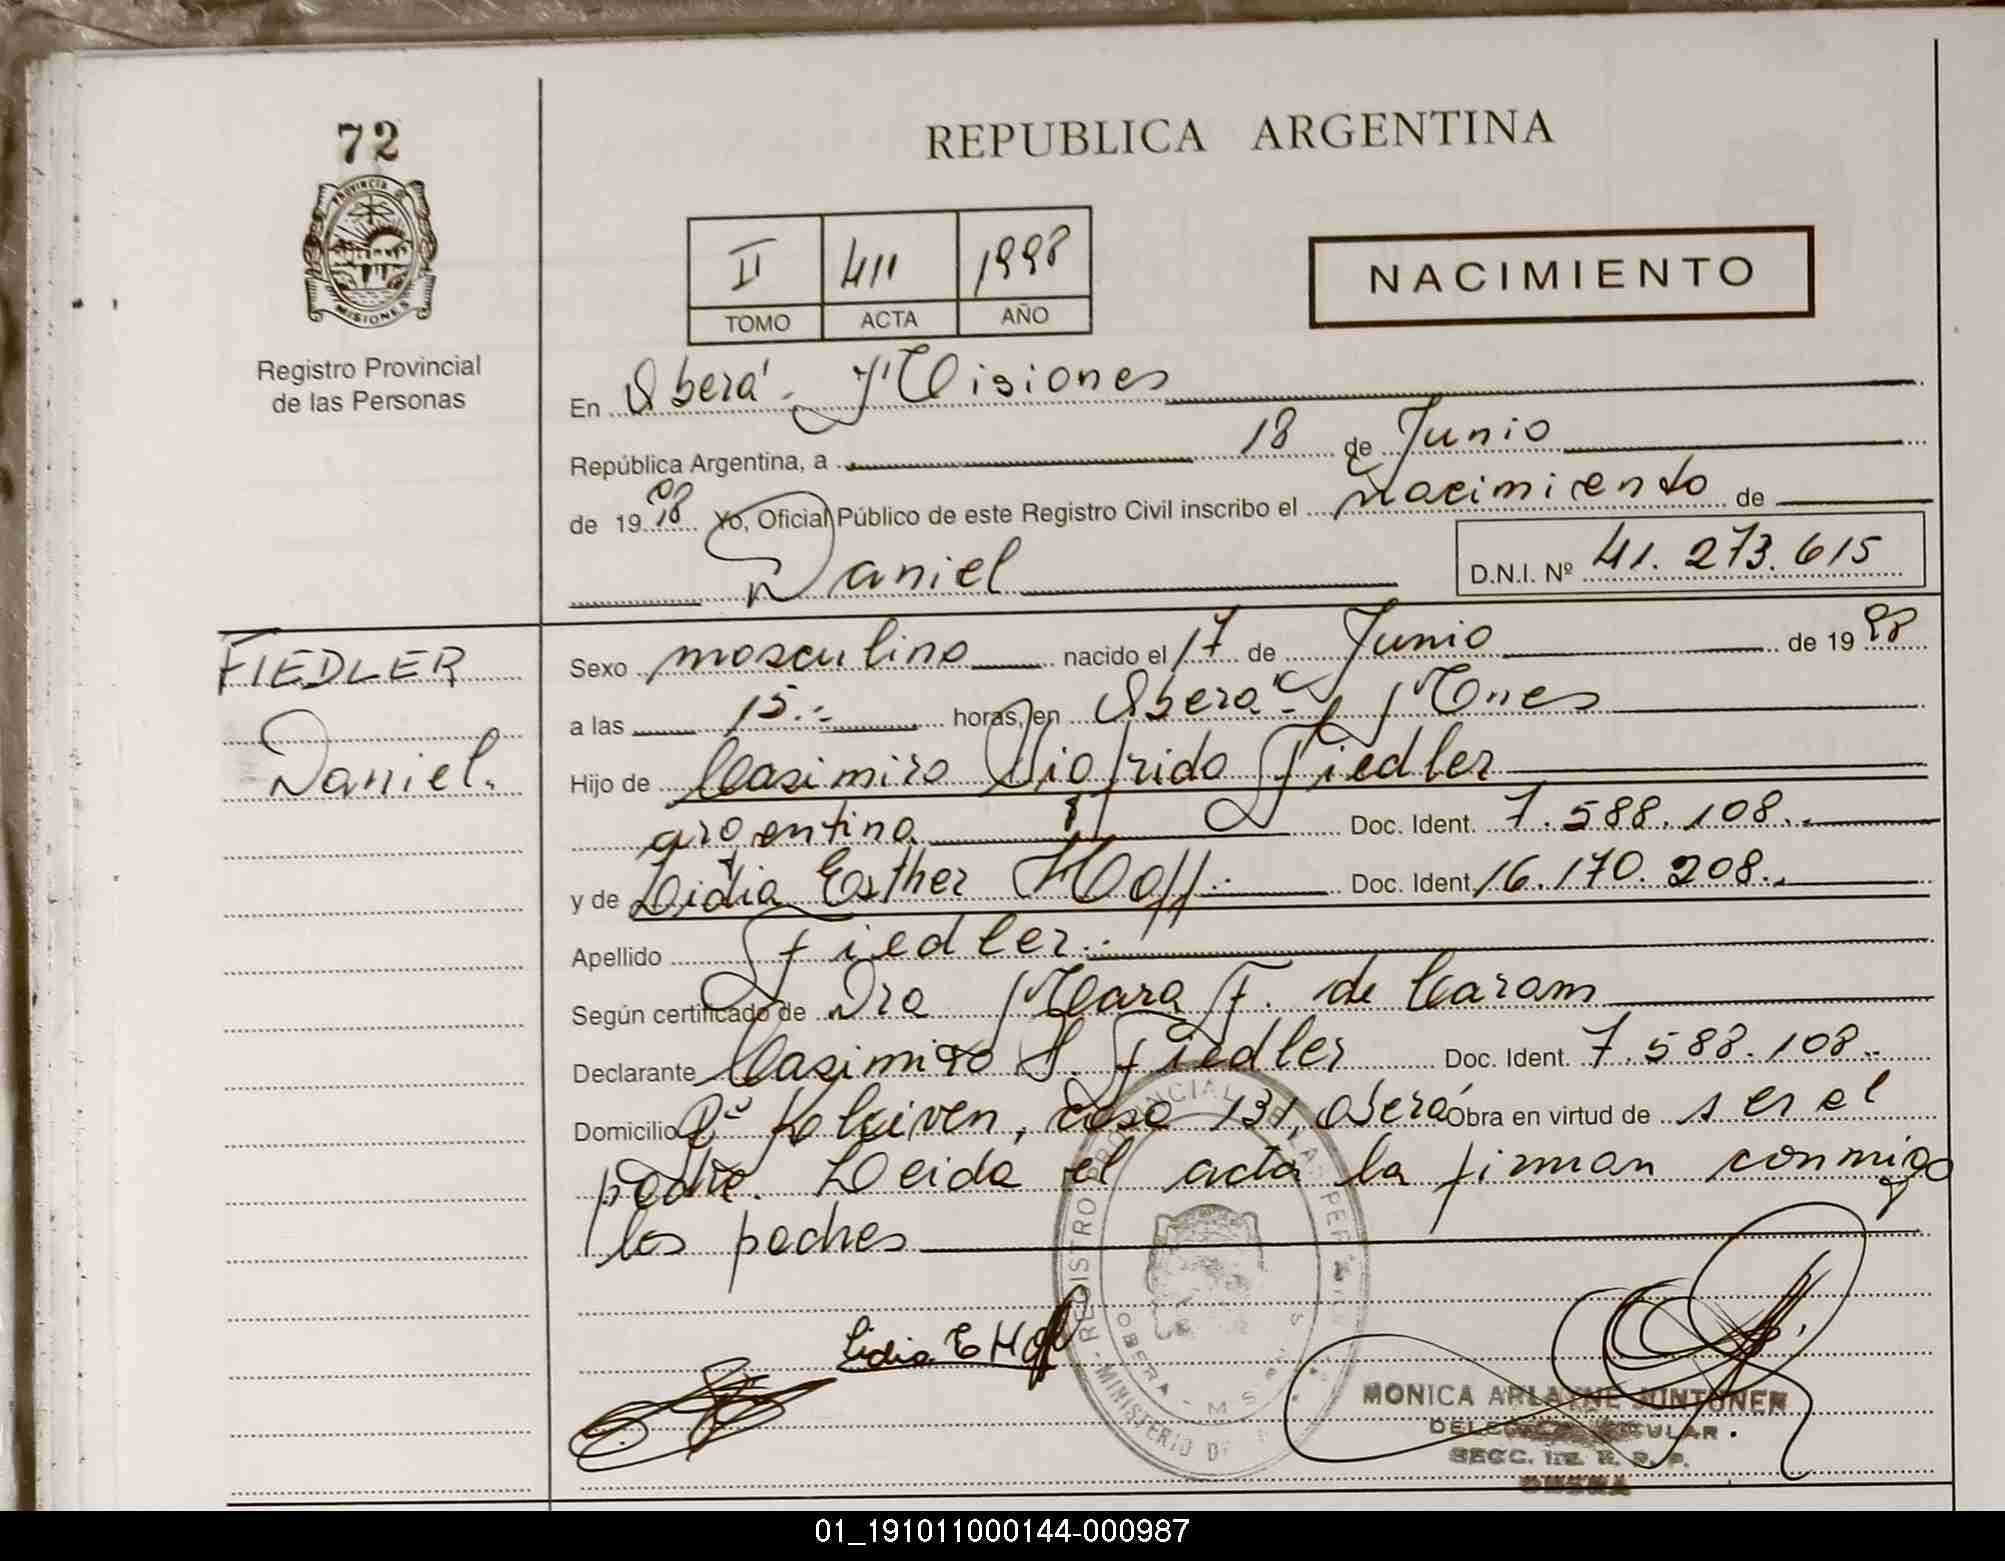 72
PROVINCIA DE
MISIONES
Registro Provincial
de las Personas
REPUBLICA ARGENTINA
II 411 1998
TOMO ACTA AÑO
NACIMIENTO
En Oberá - Misiones
República Argentina, a 18 de Junio
de 19 98 Yo, Oficial Público de este Registro Civil inscribo el nacimiento de
Daniel D.N.I. Nº 41.273.615
FIEDLER
Daniel.
Sexo masculino nacido el 17 de Junio de 19 98
a las 15.- horas, en Oberá - Mnes
Hijo de Casimiro Sigfrido Fiedler
argentino Doc. Ident. 7.588.108.-
y de Lidia Esther Hoff.- Doc. Ident. 16.170.208.-
Apellido Fiedler.-
Según certificado de Dra Mara F. de Caram
Declarante Casimiro S. Fiedler Doc. Ident. 7.588.108.-
Domicilio Bº Kolkiven, casa 131, Oberá Obra en virtud de ser el
padre. Leida el acta la firman conmigo
los padres
Lidia E Hoff
REGISTRO PROVINCIAL DE LAS PER
OBERA - MS
MINISTERIO DE
MONICA ARLAYNE NINTUNEN
SECC. R. P. P.
OBERA
01_191011000144-000987